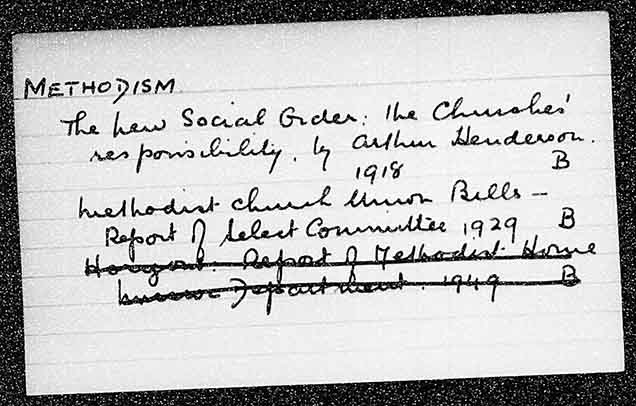 METHODISM
The New Social Order: The Churches'
responsibility, by Arthur Henderson.
1918 B
Methodist Church Union Bills –
Report of Select Committee 1929 B
Horizont. Report of Methodist Home
Mission Department. 1949 B